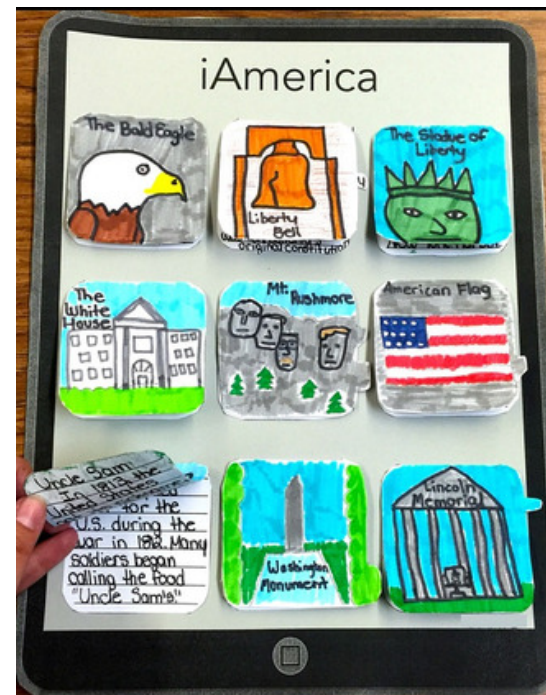 iAmerica
The Bald Eagle
Liberty
Bell
original constitution
The Stadue of
Liberty
The
White
House
Mt.
Rushmore
American Flag
Uncle Sam
In 1813, the
United States
for the
U.S. during the
war in 1812. Many
soldiers began
calling the food
"Uncle Sam's."
Washington
Monument
Lincoln
Memorial